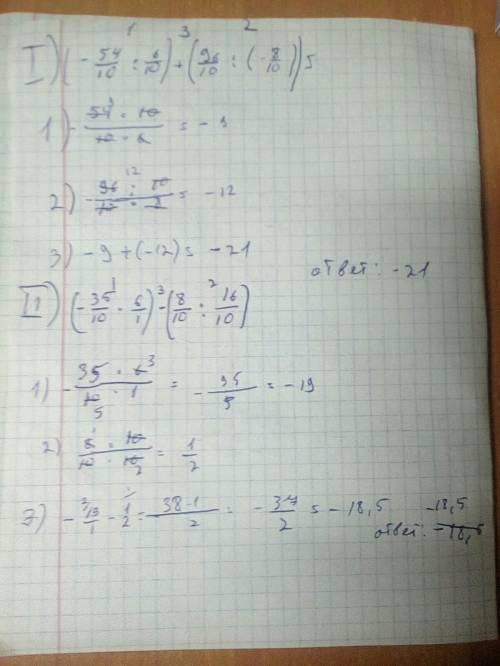 1 3 2
I) (- 54/10 : 6/10) + (96/10 : (- 8/10)) =
1) - 54 · 10 / 10 · 6 = - 9
2) - 96 · 10 / 10 · 8 = - 12
3) - 9 + (-12) = - 21
ответ: -21
II) (- 35/10 · 6/1) - (8/10 : 16/10)
1) - 35 · 6 / 10 · 1 = - 95/5 = - 19
2) 8 · 10 / 10 · 16 = 1/2
3) - 19/1 - 1/2 = 38-1 / 2 = - 37/2 = - 18,5
-18,5
ответ: - 18,5